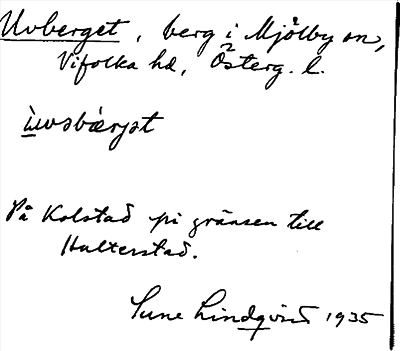 Uvberget, berg i Mjölby sn,
Vifolka hd, Österg. l.
ùvsbærjət
På Kolstad på gränsen till
Hulterstad.
Sune Lindqvist 1935